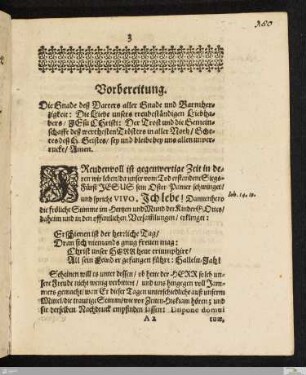 3
Vorbereitung.
Die Gnade deß Vatters aller Gnade und Barmher-
tzigkeit: Die Liebe unsers treubeständigen Liebha-
bers / JEsu CHristi: Der Trost und die Gemein-
schafft deß werthesten Trösters in aller Noth / GOt-
tes deß H. Geistes / sey und bleibe bey uns allen unver-
ruckt / Amen.
FReudenvoll ist gegenwertige Zeit / in de-
ren wir leben / da unser vom Tod erstandener Sieges-
Fürst JESUS sein Oster-Panier schwinget /
und spricht VIVO, Ich lebe! Dannenhero
die fröliche Stimme im Hertzen und Mund der Kinder GOttes /
daheim und in den offentlichen Versamlungen / erklinget:
Joh. 14, 19.
Erschienen ist der herrliche Tag /
Dran sich niemand gnug freuen mag:
Christ unser HERR heut triumphirt /
All sein Feind er gefangen führt: Halleln-Jah!
Scheinen will es unter dessen / ob hätte der HERR selbst un-
sere Freude nicht wenig verbittert / und uns hingegen voll Jam-
mers gemacht / wann Er dieser Tagen
Mittel / die traurige Stimm / wie vor Zeiten Hiskiam hören / und
sie derselben Nachdruck empfinden lassen: Dispone domui
A 2
tuæ,